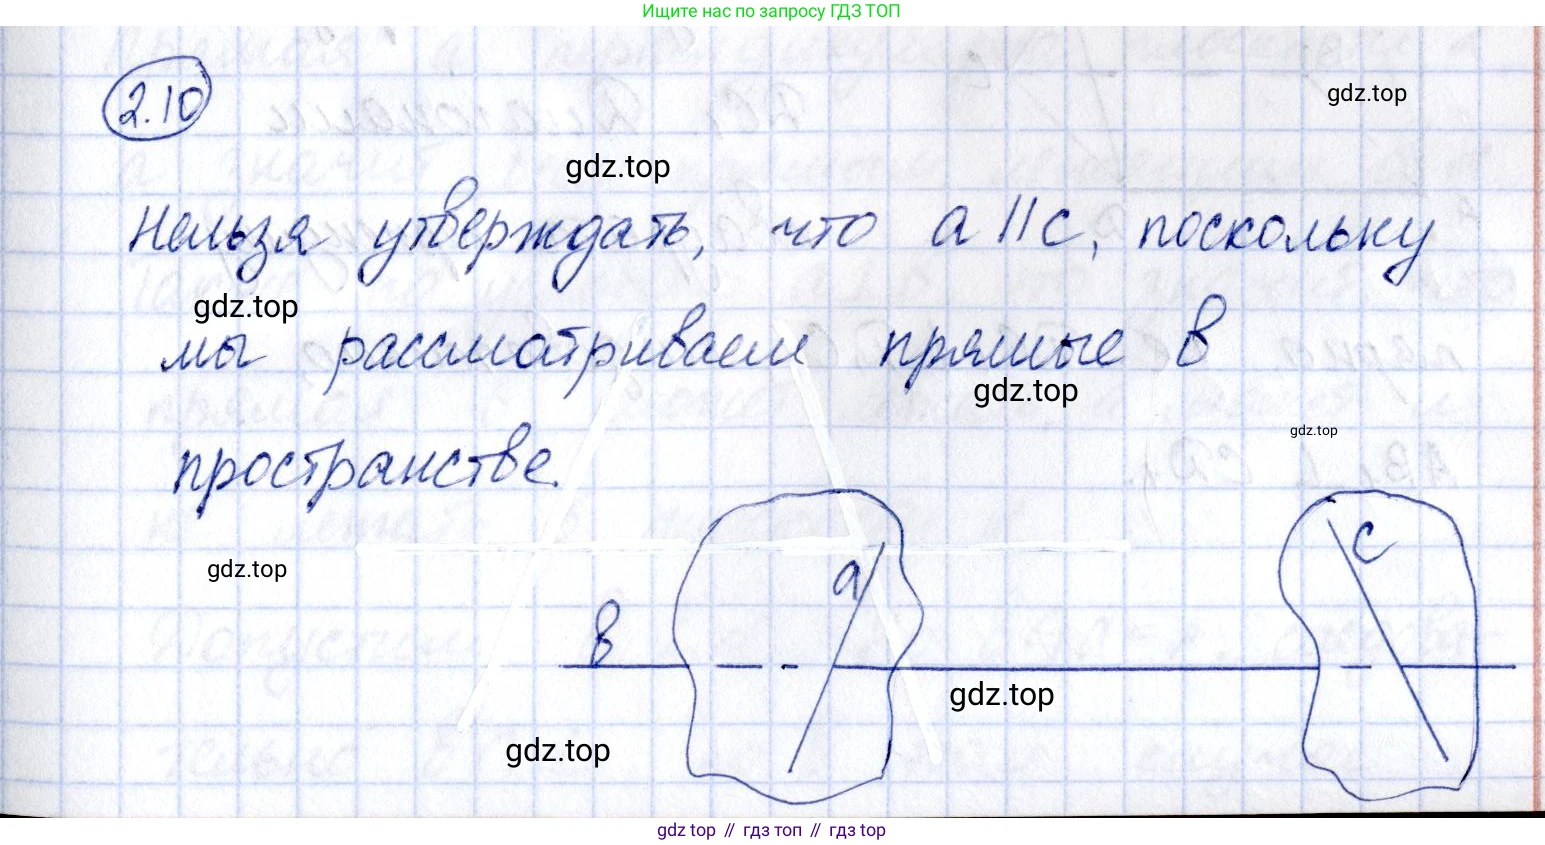 Ищите нас по запросу ГДЗ ТОП
2.10
gdz.top
gdz.top
Нельзя утверждать, что a || c, поскольку
gdz.top
мы рассматриваем прямые в
gdz.top
gdz.top
пространстве.
gdz.top
a
c
в
gdz.top
gdz.top
gdz top // гдз топ // гдз top